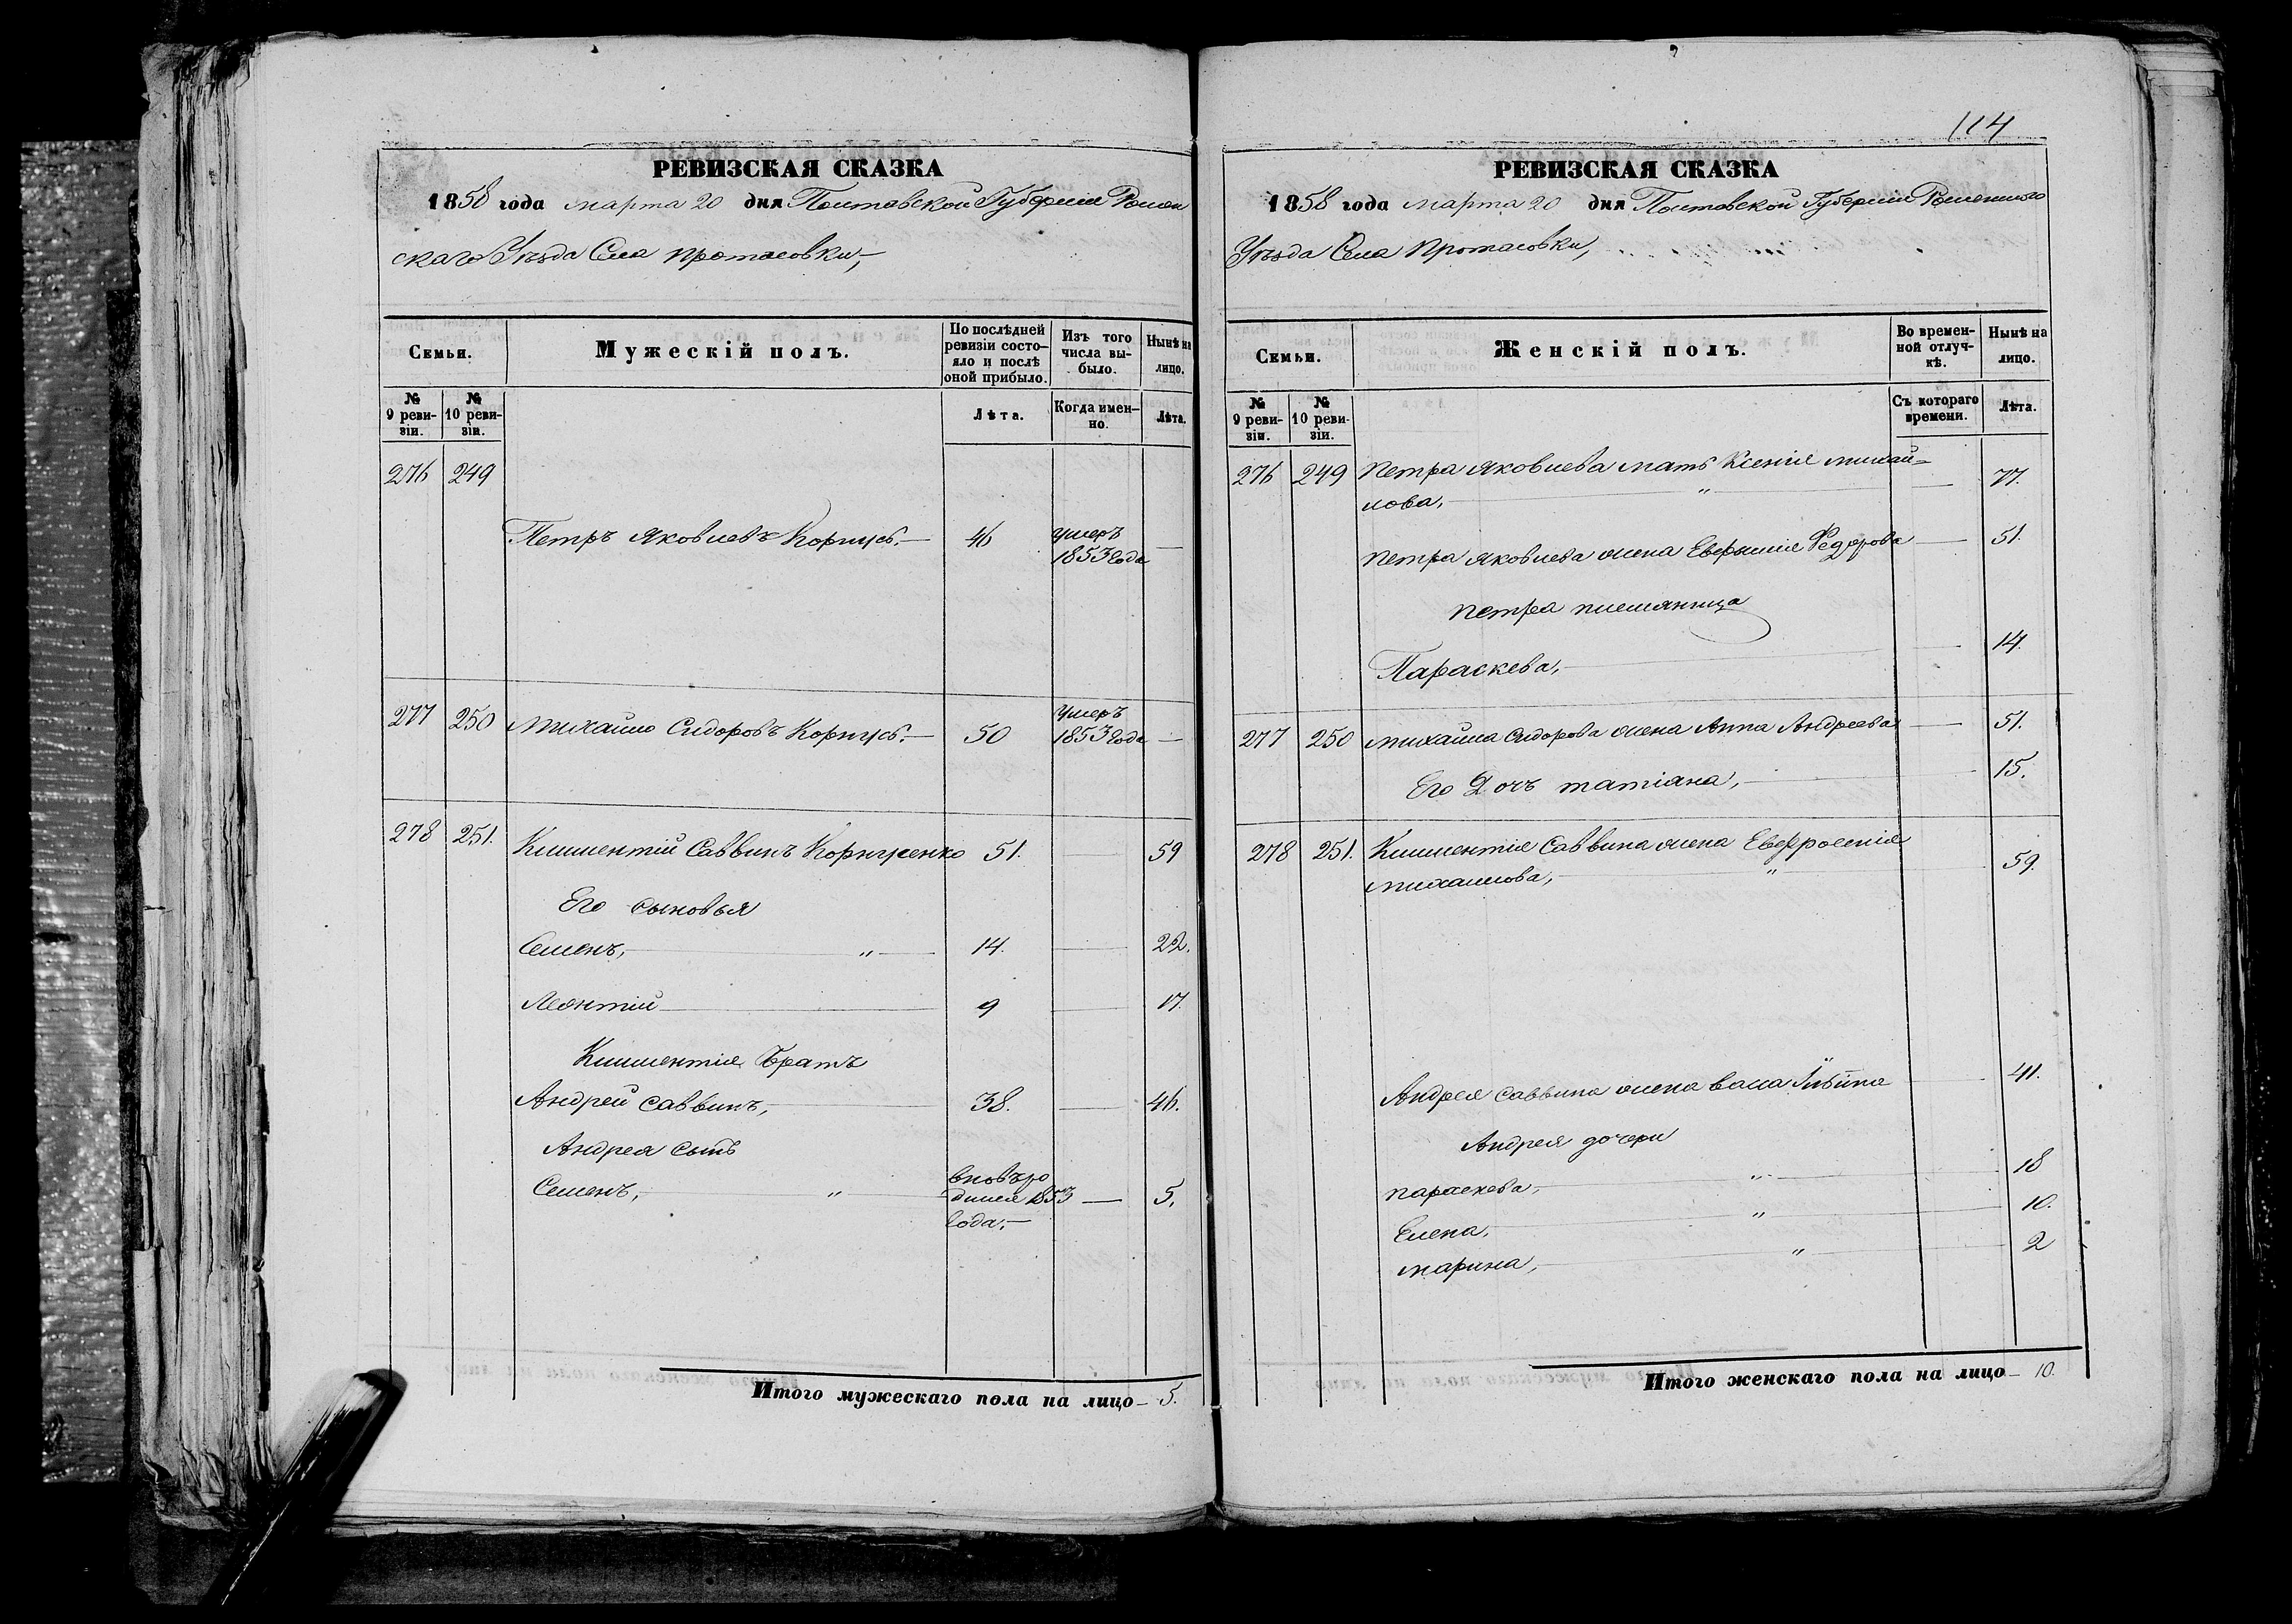 РЕВИЗСКАЯ СКАЗКА
1858 года марта 20 дня Полтавской Губерніи Ромен
скаго Уѣзда Села Протасовки,
Семьи.
Мужескій полъ.
По послѣдней ревизіи состояло и послѣ оной прибыло.
Изъ того числа выбыло.
Нынѣ на лицо.
№ 9 ревизіи.
№ 10 ревизіи.
Лѣта.
Когда именно.
Лѣта.
276 249
Петръ Яковлевъ 46 умеръ
1853 года —
277 250 Михайло Сидоровъ 50 умеръ
1853 года —
278 251. Климентій Саввинъ 51. — 59
Его сыновья
Семенъ, — „ — 14. — 22.
Леонтій — 9 — 17.
Климентія Братъ
Андрей Саввинъ, — 38. — 46.
Андрея сынъ
Семенъ, — „ вновьро
дился 1853 — 5.
года. —
Итого мужескаго пола на лицо – 5.
114
РЕВИЗСКАЯ СКАЗКА
1858 года марта 20 дня Полтавской Губерніи Роменскаго
Уѣзда Села Протасовки,
Семьи.
Женскій полъ.
Во временной отлучкѣ.
Нынѣ на лицо.
№ 9 ревизіи.
№ 10 ревизіи.
Съ котораго времени.
Лѣта.
276 249 Петра Яковлева мать Ксенія михай=
лова, — „ — 77.
Петра Яковлева жена Федорова — 51.
Петра племянница
Параскева, — 14.
277 250 Михайла Сидорова жена Анна Андреева — 51.
Его Дочь татіана, — 15.
278 251. Климентія Саввина жена Евфросинія
михаилова, — „ — 59.
Андрея Саввина жена 41.
Андрея дочери
параскева, — „ — 18
Елена, — „ — 10.
марина, — „ — 2
Итого женскаго пола на лицо – 10.